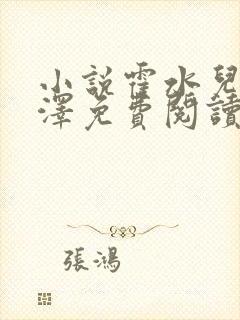 小說霍水兒
澤免費閱讀
張鴻